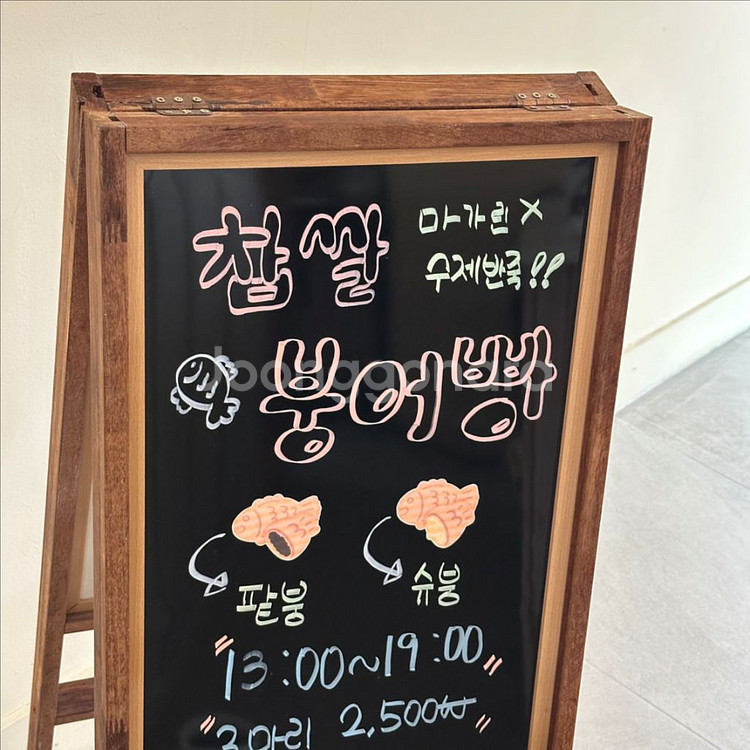 찹쌀 마가린 X
수제반죽!!
붕어빵
joonggonara
팥붕 슈붕
"13:00~19:00"
"3마리 2,500₩"